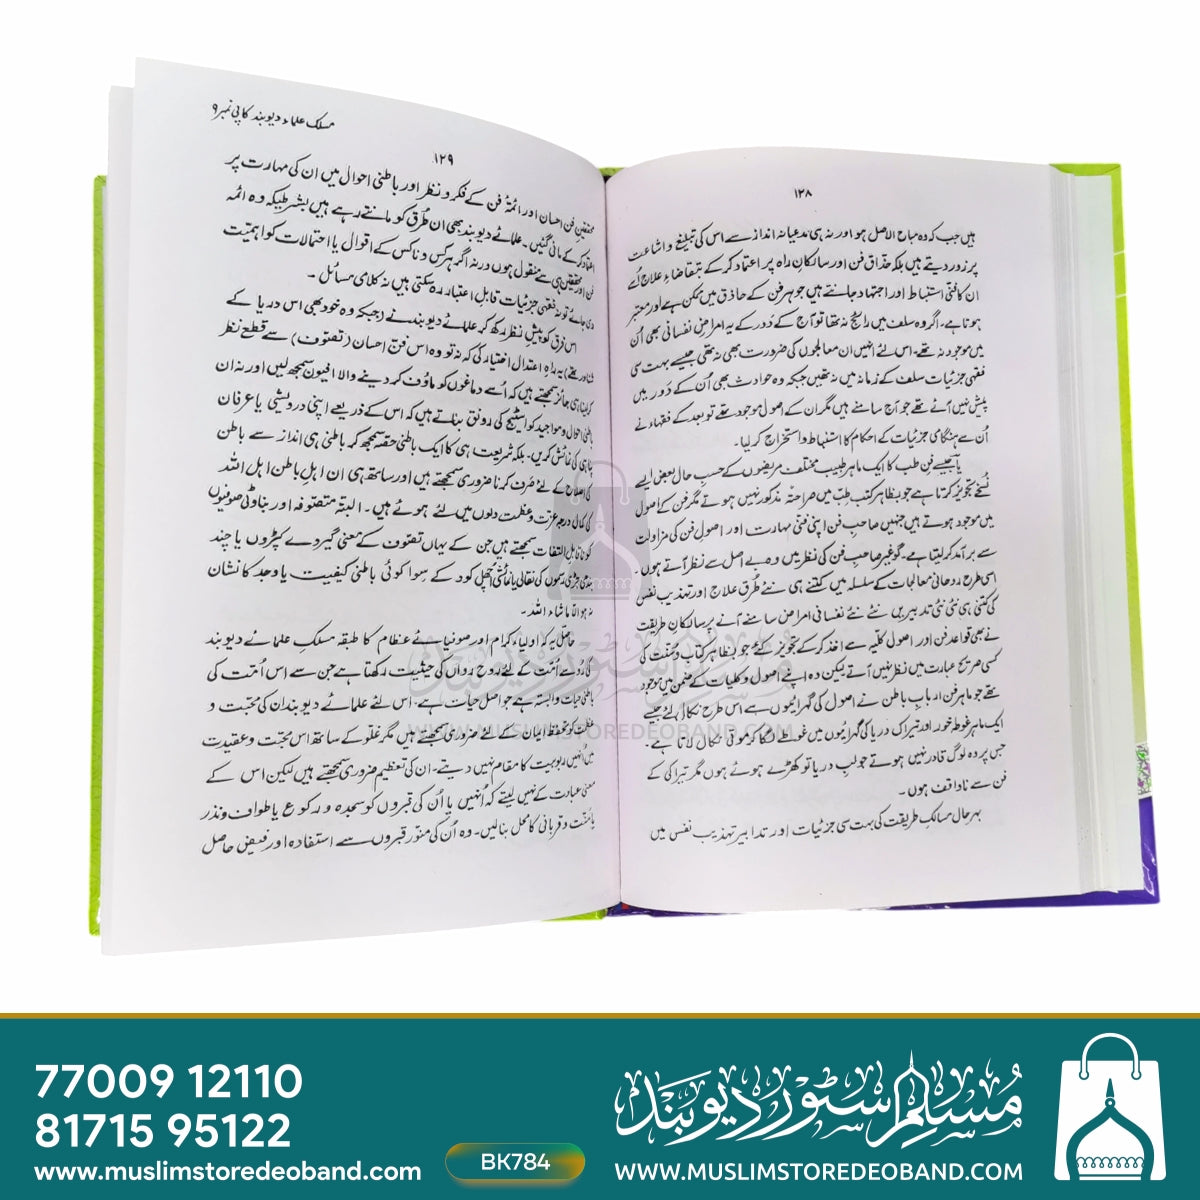 ۱۲۸
ہیں جب کہ وہ مباح الاصل ہو اور نہ ہی مدعیانہ انداز سے اس کی تبلیغ و اشاعت
پر زور دیتے ہیں بلکہ حذاق فن اور سالکانِ راہ پر اعتماد کر کے بتقاضاءِ علاج اُسے
ان کا فنی استنباط اور اجتہاد جانتے ہیں جو ہر فن کے حاذق میں ممکن ہے اور معتبر
ہوتا ہے۔ اگر وہ سلف میں رائج نہ تھا تو آج کے دَور کے یہ امراضِ نفسانی بھی اُن
میں موجود نہ تھے۔ اس لئے انہیں ان معالجوں کی ضرورت بھی نہ تھی جیسے بہت سی
فقہی جزئیات سلف کے زمانہ میں نہ تھیں جبکہ وہ حوادث بھی اُن کے دَور میں
پیش نہیں آئے تھے جو آج سامنے ہیں مگر ان کے اصول موجود تھے تو بعد کے فقہاء نے
اُن سے ہنگامی جزئیات کے احکام کا استنباط و استخراج کر لیا۔
یا جیسے فن طب کا ایک ماہر طبیب مختلف مریضوں کے حسبِ حال بعض ایسے
نُسخے تجویز کرتا ہے جو بظاہر کتب طب میں صراحۃً مذکور نہیں ہوتے مگر فن کے اصول
میں موجود ہوتے ہیں جنہیں صاحبِ فن اپنی فنی مہارت اور اصول فن کی مزاولت
سے برآمد کر لیتا ہے۔ گو غیر صاحب فن کی نظر میں وہ بے اصل سے نظر آتے ہوں۔
اسی طرح روحانی معالجات کے سلسلہ میں کتنے ہی نئے طُرق علاج اور تہذیب نفس
کی کتنی ہی نئی نئی تدبیریں نئے نئے نفسانی امراض سامنے آنے پر سالکانِ طریقت
نے بھی قواعد فن اور اصول کلیہ سے اخذ کر کے تجویز کئے جو بظاہر کتاب و سُنت کی
کسی صریح عبارت میں نظر نہیں آتے لیکن وہ اپنے اصول و کلیات کے ضمن میں موجود
تھے جو ماہر فن اربابِ باطن نے اصول کی گہرائیوں سے اس طرح نکال لئے جیسے
ایک ماہر غوطہ خور اور تیراک دریا کی گہرائیوں میں غوطے لگا کر موتی نکال لاتا ہے۔
جس پر وہ لوگ قادر نہیں ہوتے جو لب دریا تو کھڑے ہوئے ہوں مگر تیراکی کے
فن سے ناواقف ہوں۔
بہر حال مسالکِ طریقت کی بہت سی جزئیات اور تدابیر تہذیب نفس میں
مسلک علماء دیوبند کاپی نمبر ۹
۱۲۹
محققینِ فن احسان اور ائمۂ فن کے فکر و نظر اور باطنی احوال میں ان کی مہارت پر
اعتماد کر کے مانی گئیں۔ علمائے دیوبند بھی ان طُرق کو مانتے رہے ہیں بشرطیکہ وہ ائمہ
فن اور محققین ہی سے منقول ہوں ورنہ اگر ہر کس و ناکس کے اقوال یا احتمالات کو اہمیت
دی جائے تو نہ فقہی جزئیات قابلِ اعتبار رہ سکتی ہیں نہ کلامی مسائل۔
اس فرق کو پیشِ نظر رکھ کر علمائے دیوبند نے (جبکہ وہ خود بھی اس دریا کے
شناور تھے) یہ راہِ اعتدال اختیار کی کہ نہ تو وہ اس فنِ احسان (تصوّف) سے قطع نظر
کر لینا ہی جائز سمجھتے ہیں کہ اُسے دماغوں کو ماؤف کر دینے والا افیون سمجھ لیں اور نہ ان
باطنی احوال و مواجید کو اسٹیج کی رونق بناتے ہیں کہ اس کے ذریعے اپنی درویشی یا عرفان
پناہی کی نمائش کریں۔ بلکہ شریعت ہی کا ایک باطنی حصّہ سمجھ کر باطنی ہی انداز سے باطن
کی اصلاح کے لئے صَرف کرنا ضروری سمجھتے ہیں اور ساتھ ہی ان اہلِ باطن اہل اللہ
کی کمالی درجہ عزت و عظمت دلوں میں لئے ہوئے ہیں۔ البتہ متصوفہ اور بناوٹی صوفیوں
کو ناقابل التفات سمجھتے ہیں جن کے یہاں تصوّف کے معنی گیروے کپڑوں یا چند
بندھی جڑی رسموں کی نقالی یا نمائشی اچھل کود کے سِوا کوئی باطنی کیفیت یا وجد کا نشان
نہ ہو الا ماشاء اللہ۔
حاصل یہ کہ اولیاء کرام اور صوفیائے عظام کا طبقہ مسلکِ علمائے دیوبند
کی رُو سے اُمت کے لئے روحِ رواں کی حیثیت رکھتا ہے جن سے اس اُمت کی
باطنی حیات وابستہ ہے جو اصل حیات ہے۔ اس لئے علمائے دیوبند ان کی محبت و
عظمت کو تحفظِ ایمان کے لئے ضروری سمجھتے ہیں مگر غلو کے ساتھ اس محبت و عقیدت
میں اُنہیں ربوبیت کا مقام نہیں دیتے۔ ان کی تعظیم ضروری سمجھتے ہیں لیکن اس کے
معنی عبادت کے نہیں لیتے کہ اُنہیں یا اُن کی قبروں کو سجدہ و رکوع یا طواف و نذر
یا منّت و قربانی کا محل بنا لیں۔ وہ اُن کی منور قبروں سے استفادہ اور فیض حاصل
مسلم سٹور دیوبند
WWW.MUSLIMSTOREDEOBAND.COM
77009 12110
81715 95122
www.muslimstoredeoband.com
BK784
مسلم سٹور دیوبند
WWW.MUSLIMSTOREDEOBAND.COM